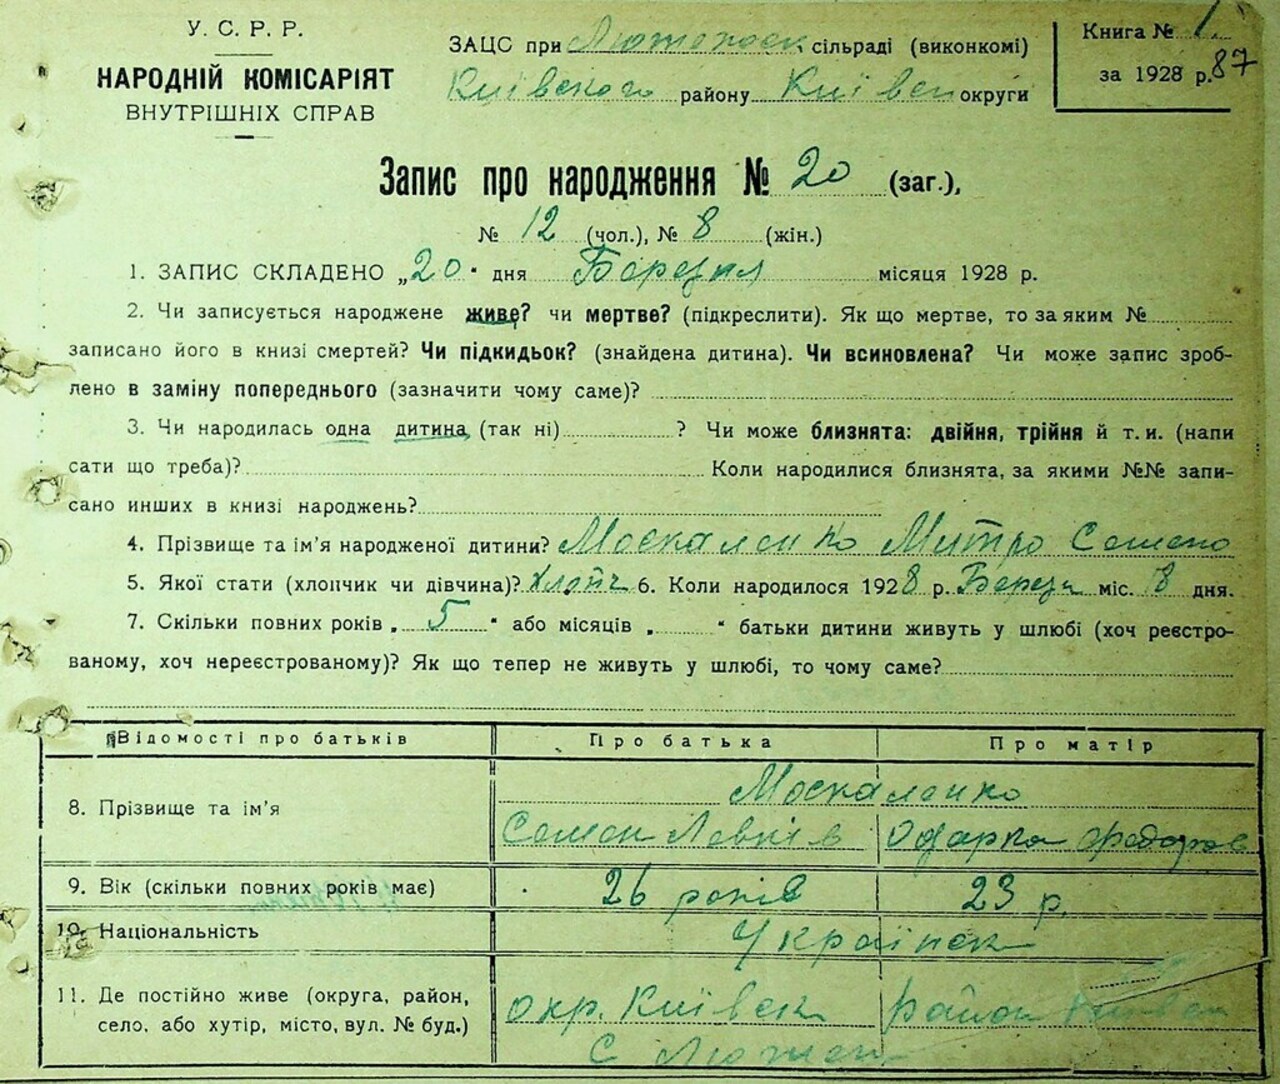 У. С. Р. Р.
НАРОДНІЙ КОМІСАРІЯТ
ВНУТРІШНІХ СПРАВ
ЗАЦС при сільраді (виконкомі)
Київского району Київск округи
Книга № 1
за 1928 р. 87
Запис про народження № 20 (заг.),
№ 12 (чол.), № 8 (жін.)
1. ЗАПИС СКЛАДЕНО „20“ дня Березня місяця 1928 р.
2. Чи записується народжене живе? чи мертве? (підкреслити). Як що мертве, то за яким №
записано його в книзі смертей? Чи підкидьок? (знайдена дитина). Чи всиновлена? Чи може запис зроб-
лено в заміну попереднього (зазначити чому саме)?
3. Чи народилась одна дитина (так ні) ? Чи може близнята: двійня, трійня й т. и. (напи
сати що треба)? Коли народилися близнята, за якими №№ запи-
сано инших в книзі народжень?
4. Прізвище та ім’я народженої дитини? Москаленко Митро Семено
5. Якої стати (хлопчик чи дівчина)? Хлопч 6. Коли народилося 1928 р. Березн міс. 18 дня.
7. Скільки повних років „ 5 “ або місяців „ “ батьки дитини живуть у шлюбі (хоч реєстро-
ваному, хоч нереєстрованому)? Як що тепер не живуть у шлюбі, то чому саме?
Відомості про батьків Про батька Про матір
8. Прізвище та ім’я Москаленко
Семен Левків Одарка Федоров
9. Вік (скільки повних років має) 26 років 23 р.
10. Національність Українск
11. Де постійно живе (округа, район,
село, або хутір, місто, вул. № буд.)
окр. Київск район Київск
С